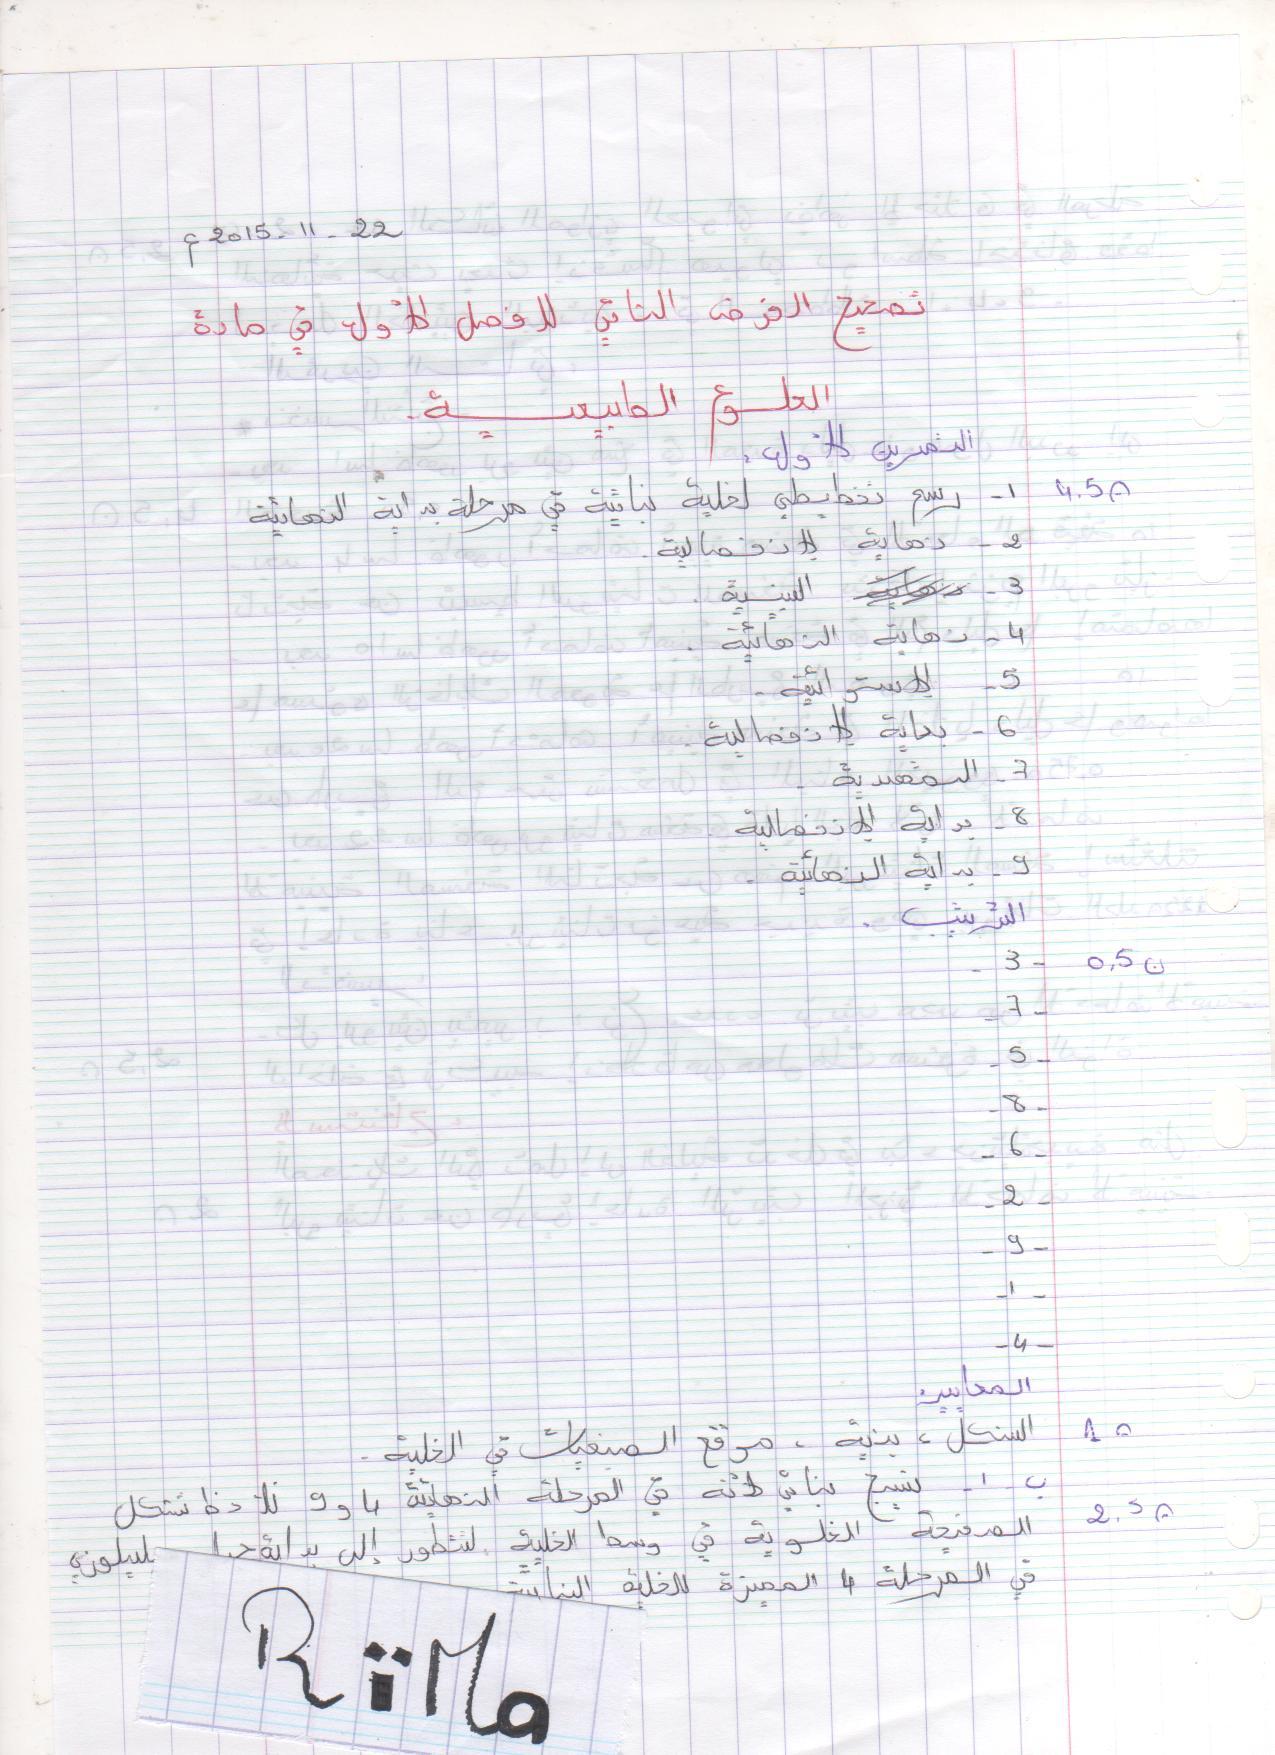 22-11-2015م
تصحيح الفرض الثاني للفصل الأول في مادة
العلوم الطبيعية.
التمرين الأول.
4.5ن 1- رسم تخطيطي لخلية نباتية في مرحلة بداية النهائية
2- نهاية الانفصالية.
3- البينية.
4- نهاية النهائية.
5- الاستوائية.
6- بداية الانفصالية.
7- التمهيدية.
8- بداية الانفصالية
9- بداية النهائية.
الترتيب.
0,5ن -3-
-7-
-5-
-8-
-6-
-2-
-9-
-1-
-4-
المعايير
1ن الشكل، بنية، موقع الصبغيات في الخلية.
ب-1- نسيج نباتي لأنه في المرحلة النهائية 4 و9 نلاحظ تشكل
2.5ن الصفيحة الخلوية في وسط الخلية لتتطور إلى بداية
في المرحلة 4 المميزة للخلية النباتية
RiMa